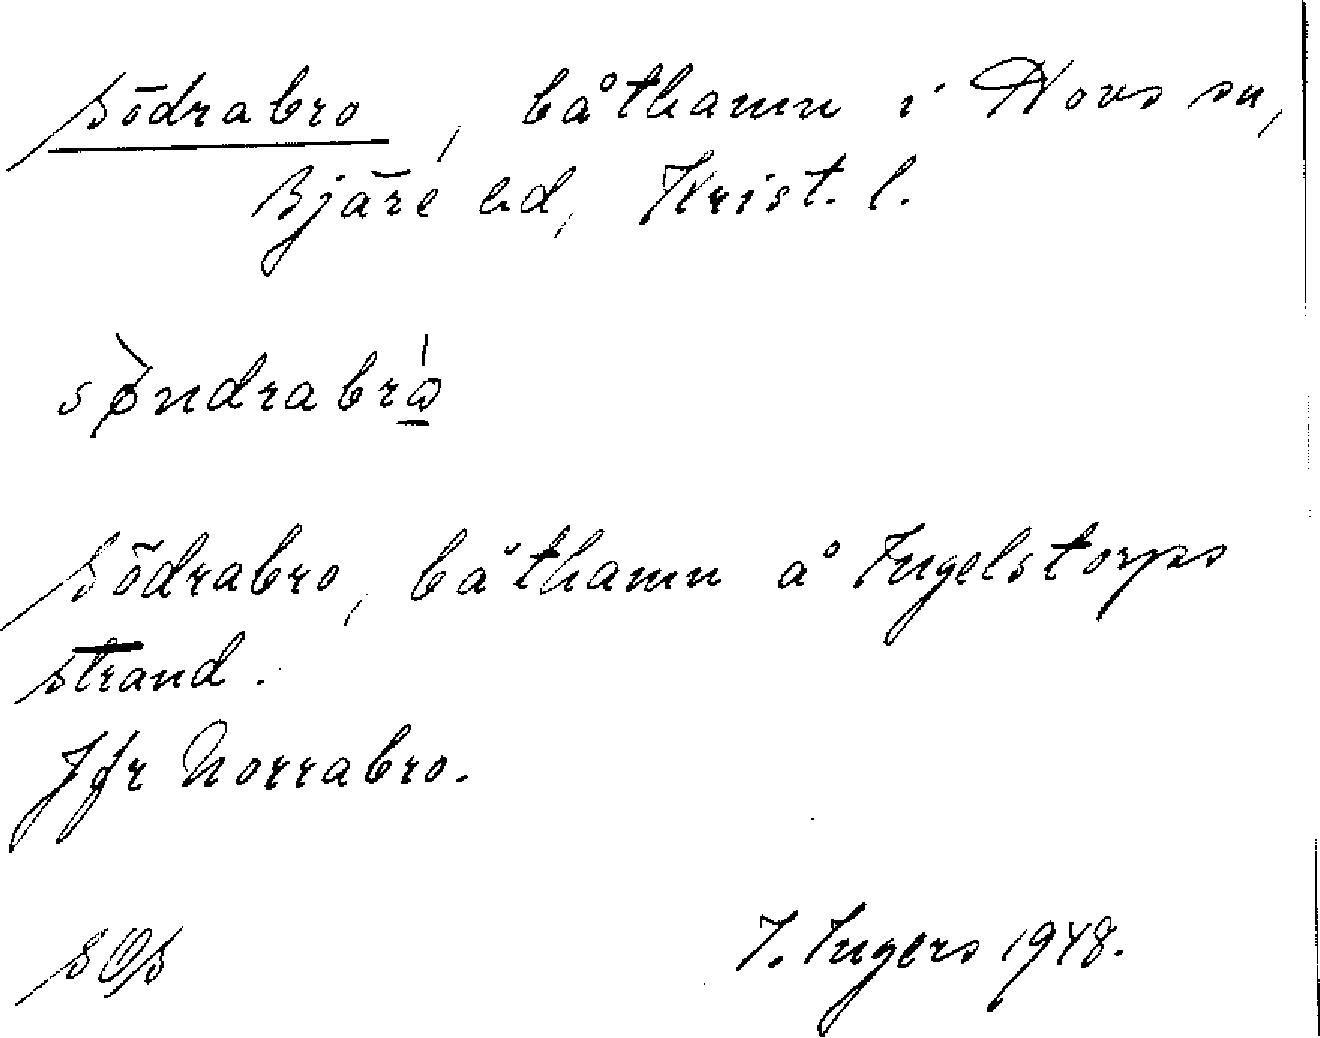 Södrabro, båthamn i Hovs sn,
Bjäre hd, Krist. l.
sø̀ndrabró̱
Södrabro, båthamn å Ingelstorps
strand.
Jfr Norrabro.
SOS
I. Ingers 1948.